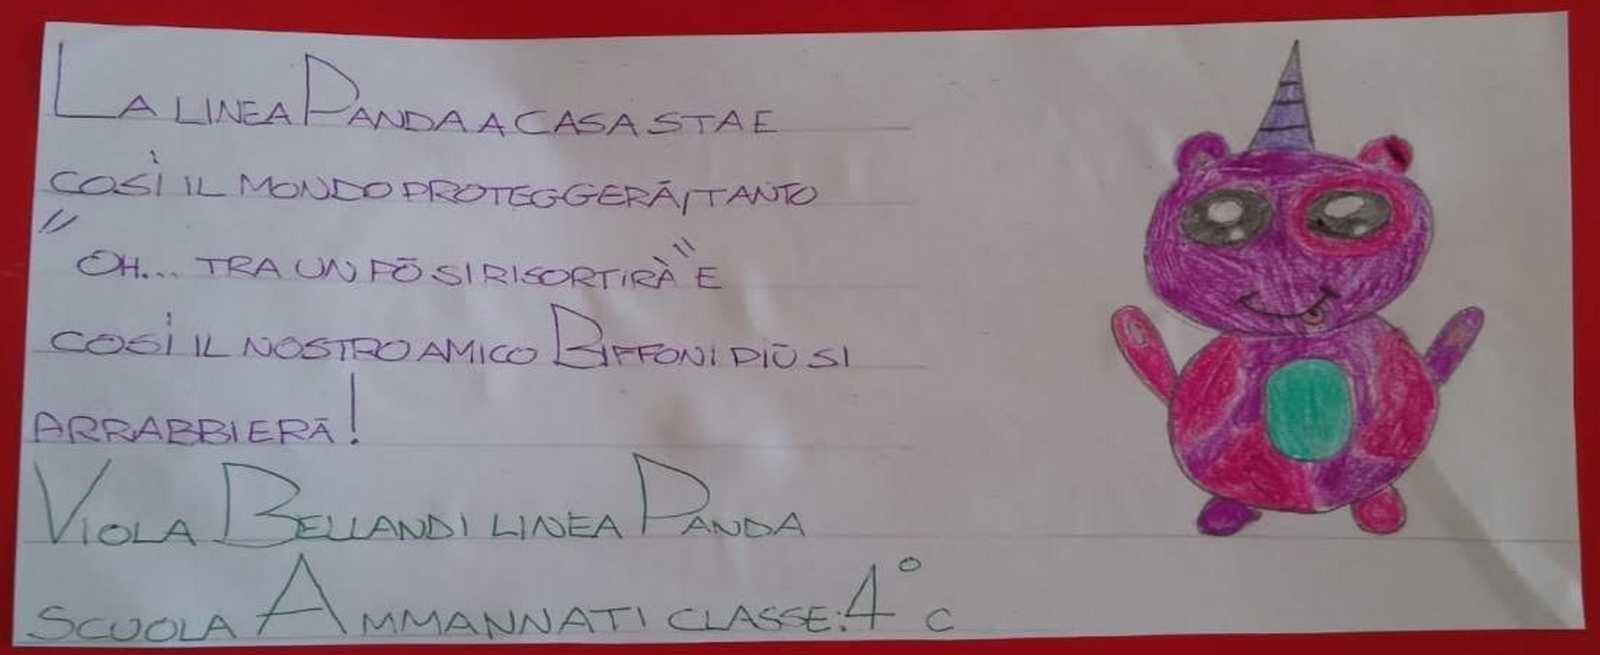 LA LINEA PANDA A CASA STA E
COSÌ IL MONDO PROTEGGERÀ, TANTO
"OH... TRA UN PÒ SI RISORTIRÀ" E
COSÌ IL NOSTRO AMICO BIFFONI PIÙ SI
ARRABBIERÀ!
VIOLA BELLANDI LINEA PANDA
SCUOLA AMMANNATI CLASSE: 4° C